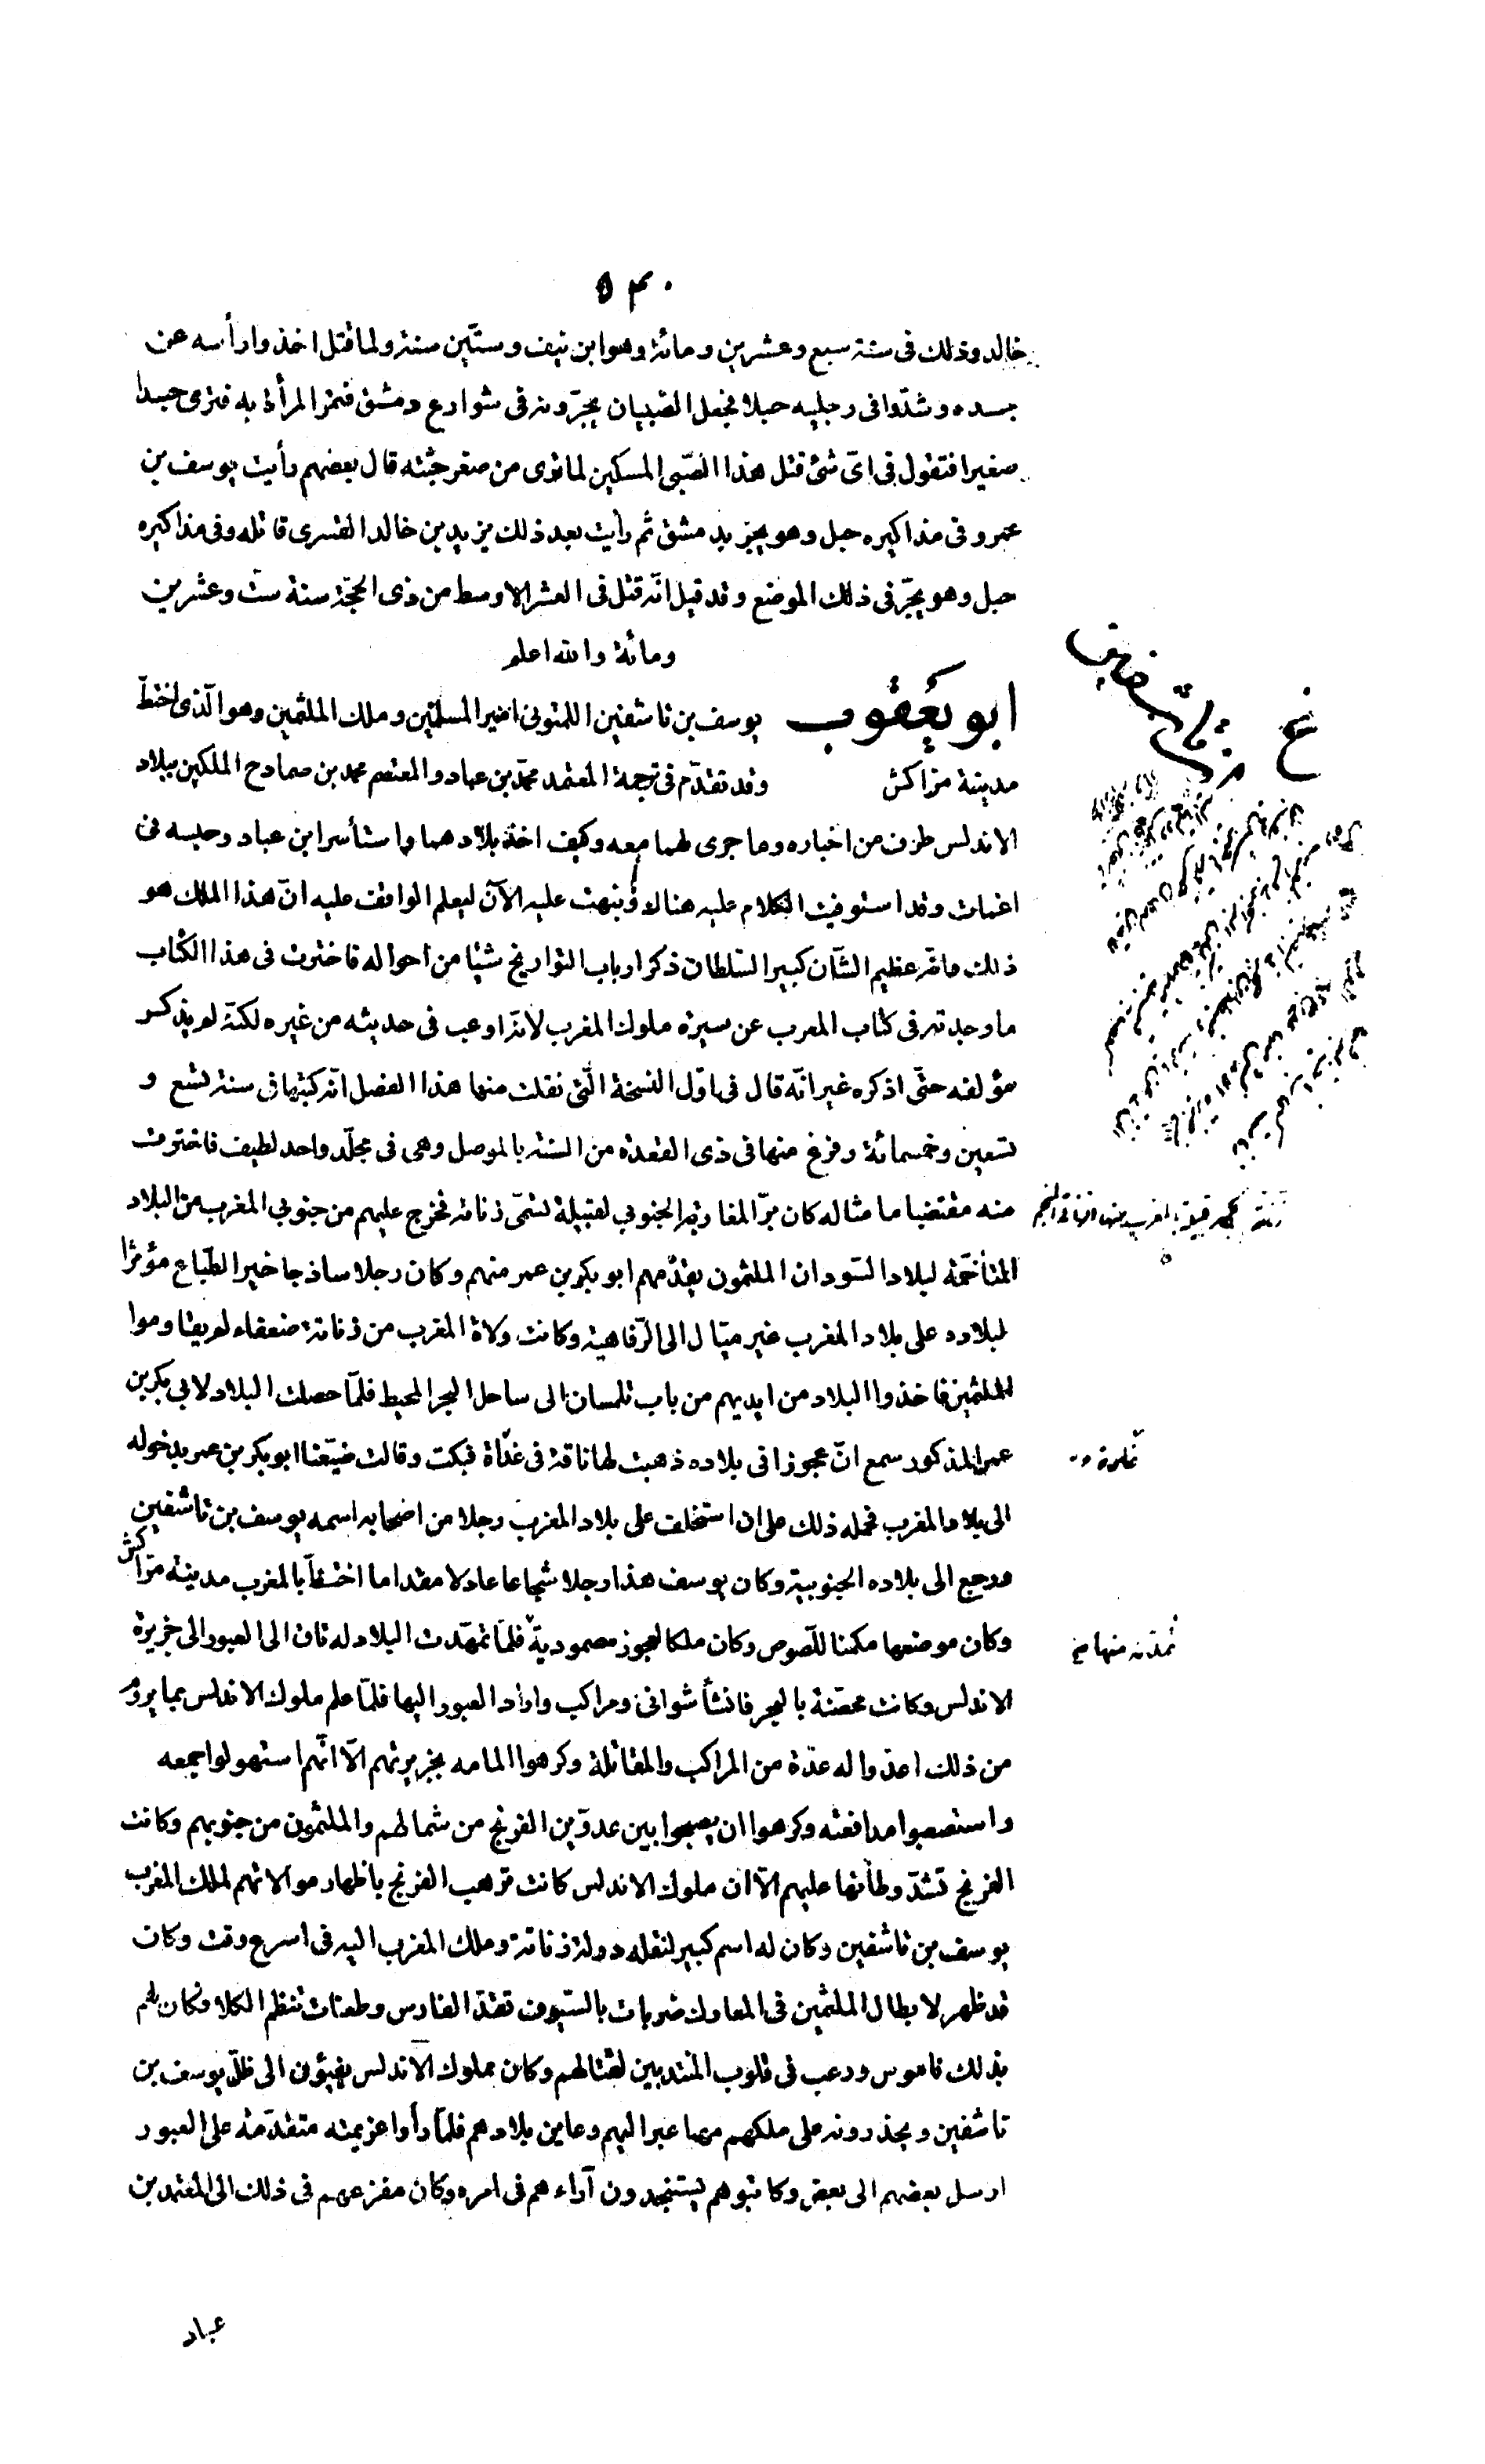 ۵۳۰
خالد وذلك فى سنة سبع وعشرين ومائة وهو ابن نيف وستّين سنة ولما قتل اخذوا رأسه عن
جسده وشدّوا فى رجليه حبلا فجعل الصبيان يجرّونه فى شوارع دمشق فتمر المرأة به فترى جسدا
صغيرا فتقول فى اىّ شئ قتل هذا الصّبى المسكين لما ترى من صغر جثته قال بعضهم رأيت يوسف بن
عمر وفى مذاكيره حبل وهو يجر بدمشق ثم رأيت بعد ذلك يزيد بن خالد القسرى قاتله وفى مذاكيره
حبل وهو يجرّ فى ذلك الموضع وقد قيل انّه قتل فى العشر الاوسط من ذى الحجّة سنة ستّ وعشرين
ومائة والله اعلم
ابو يَعقُوب يوسف بن تاشفين اللمتونى امير المسلمين وملك الملثمين وهو الّذى اختطّ
مدينة مراكش وقد تقدّم فى ترجمة المعتمد محمّد بن عباد والمعتصم محمد بن صمادح الملكين ببلاد
الاندلس طرف من اخباره وما جرى لهما معه وكيف اخذ بلادهما واستأسر ابن عباد وحبسه فى
اغمات وقد استوفيت الكلام عليه هنالك ونبهت عليه الآن ليعلم الواقف عليه انّ هذا الملك هو
ذلك وانه عظيم الشّان كبير السّلطان ذكر ارباب التواريخ شيئا من احواله فاخترت فى هذا الكتاب
ما وجدته فى كتاب المعرب عن سيرة ملوك المغرب لانّه اوعب فى حديثه من غيره لكنّه لم يذكر
مؤلفه حتّى اذكره غير انّه قال فى اوّل النسخة الّتى نقلت منها هذا الفصل انّه كتبها فى سنة تسع و
تسعين وخمسمائة وفرغ منها فى ذى القعدة من السنة بالموصل وهى فى مجلّد واحد لطيف فاخترت
منه مقتضبا ما مثاله كان برّ المغاربة الجنوبى لقبيلة تسمّى زناته فخرج عليهم من جنوبى المغرب من البلاد
المتاخمة لبلاد السّودان الملثمون يقدّمهم ابو بكر بن عمر منهم وكان رجلا ساذجا خير الطّباع مؤثرا
لبلاده على بلاد المغرب غير ميّال الى الرّفاهية وكانت ولاة المغرب من زناته ضعفاء لم يقاوموا
الملثمين فاخذوا البلاد من ايديهم من باب تلمسان الى ساحل البحر المحيط فلمّا حصلت البلاد لابى بكر بن
عمر المذكور سمع انّ عجوزا فى بلاده ذهبت لها ناقة فى غداة فبكت وقالت ضيّعنا ابو بكر بن عمر بدخوله
الى بلاد المغرب فحمله ذلك على ان استخلف على بلاد المغرب رجلا من اصحابه اسمه يوسف بن تاشفين
ورجع الى بلاده الجنوبية وكان يوسف هذا رجلا شجاعا عادلا مقداما اختطّ بالمغرب مدينة مرّاكش
وكان موضعها مكمنا للّصوص وكان ملكا لعجوز مصمودية فلمّا تمهّدت البلاد له تاق الى العبور الى جزيرة
الاندلس وكانت محصّنة بالبحر فانشأ شوانى ومراكب واراد العبور اليها فلمّا علم ملوك الاندلس بما يرومه
من ذلك اعدّوا له عدّة من المراكب والمقاتلة وكرهوا المامه بجزيرتهم الّا انّهم استهولوا جمعه
واستصعبوا مدافعته وكرهوا ان يصبحوا بين عدوّين الفرنج من شمالهم والملثمون من جنوبهم وكانت
الفرنج تشدّ وطأتها عليهم الّا ان ملوك الاندلس كانت ترهب الفرنج باظهار موالاتهم لملك المغرب
يوسف بن تاشفين وكان له اسم كبير لنقله دولة زناتة وملك المغرب اليه فى اسرع وقت وكان
قد ظهر لابطال الملثمين فى المعارك ضربات بالسّيوف تقدّ الفارس وطعنات تنظم الكلا وكان لهم
بذلك ناموس ورعب فى قلوب المنتدبين لقتالهم وكان ملوك الاندلس يفيؤن الى ظلّ يوسف بن
تاشفين ويحذرونه على ملكهم مهما عبر اليهم وعاين بلادهم فلمّا رأوا عزيمته متقدّمة على العبور
ارسل بعضهم الى بعض وكاتبوهم يستنجدون آراءهم فى امره وكان مفزعهم فى ذلك الى المعتمد بن
عباد